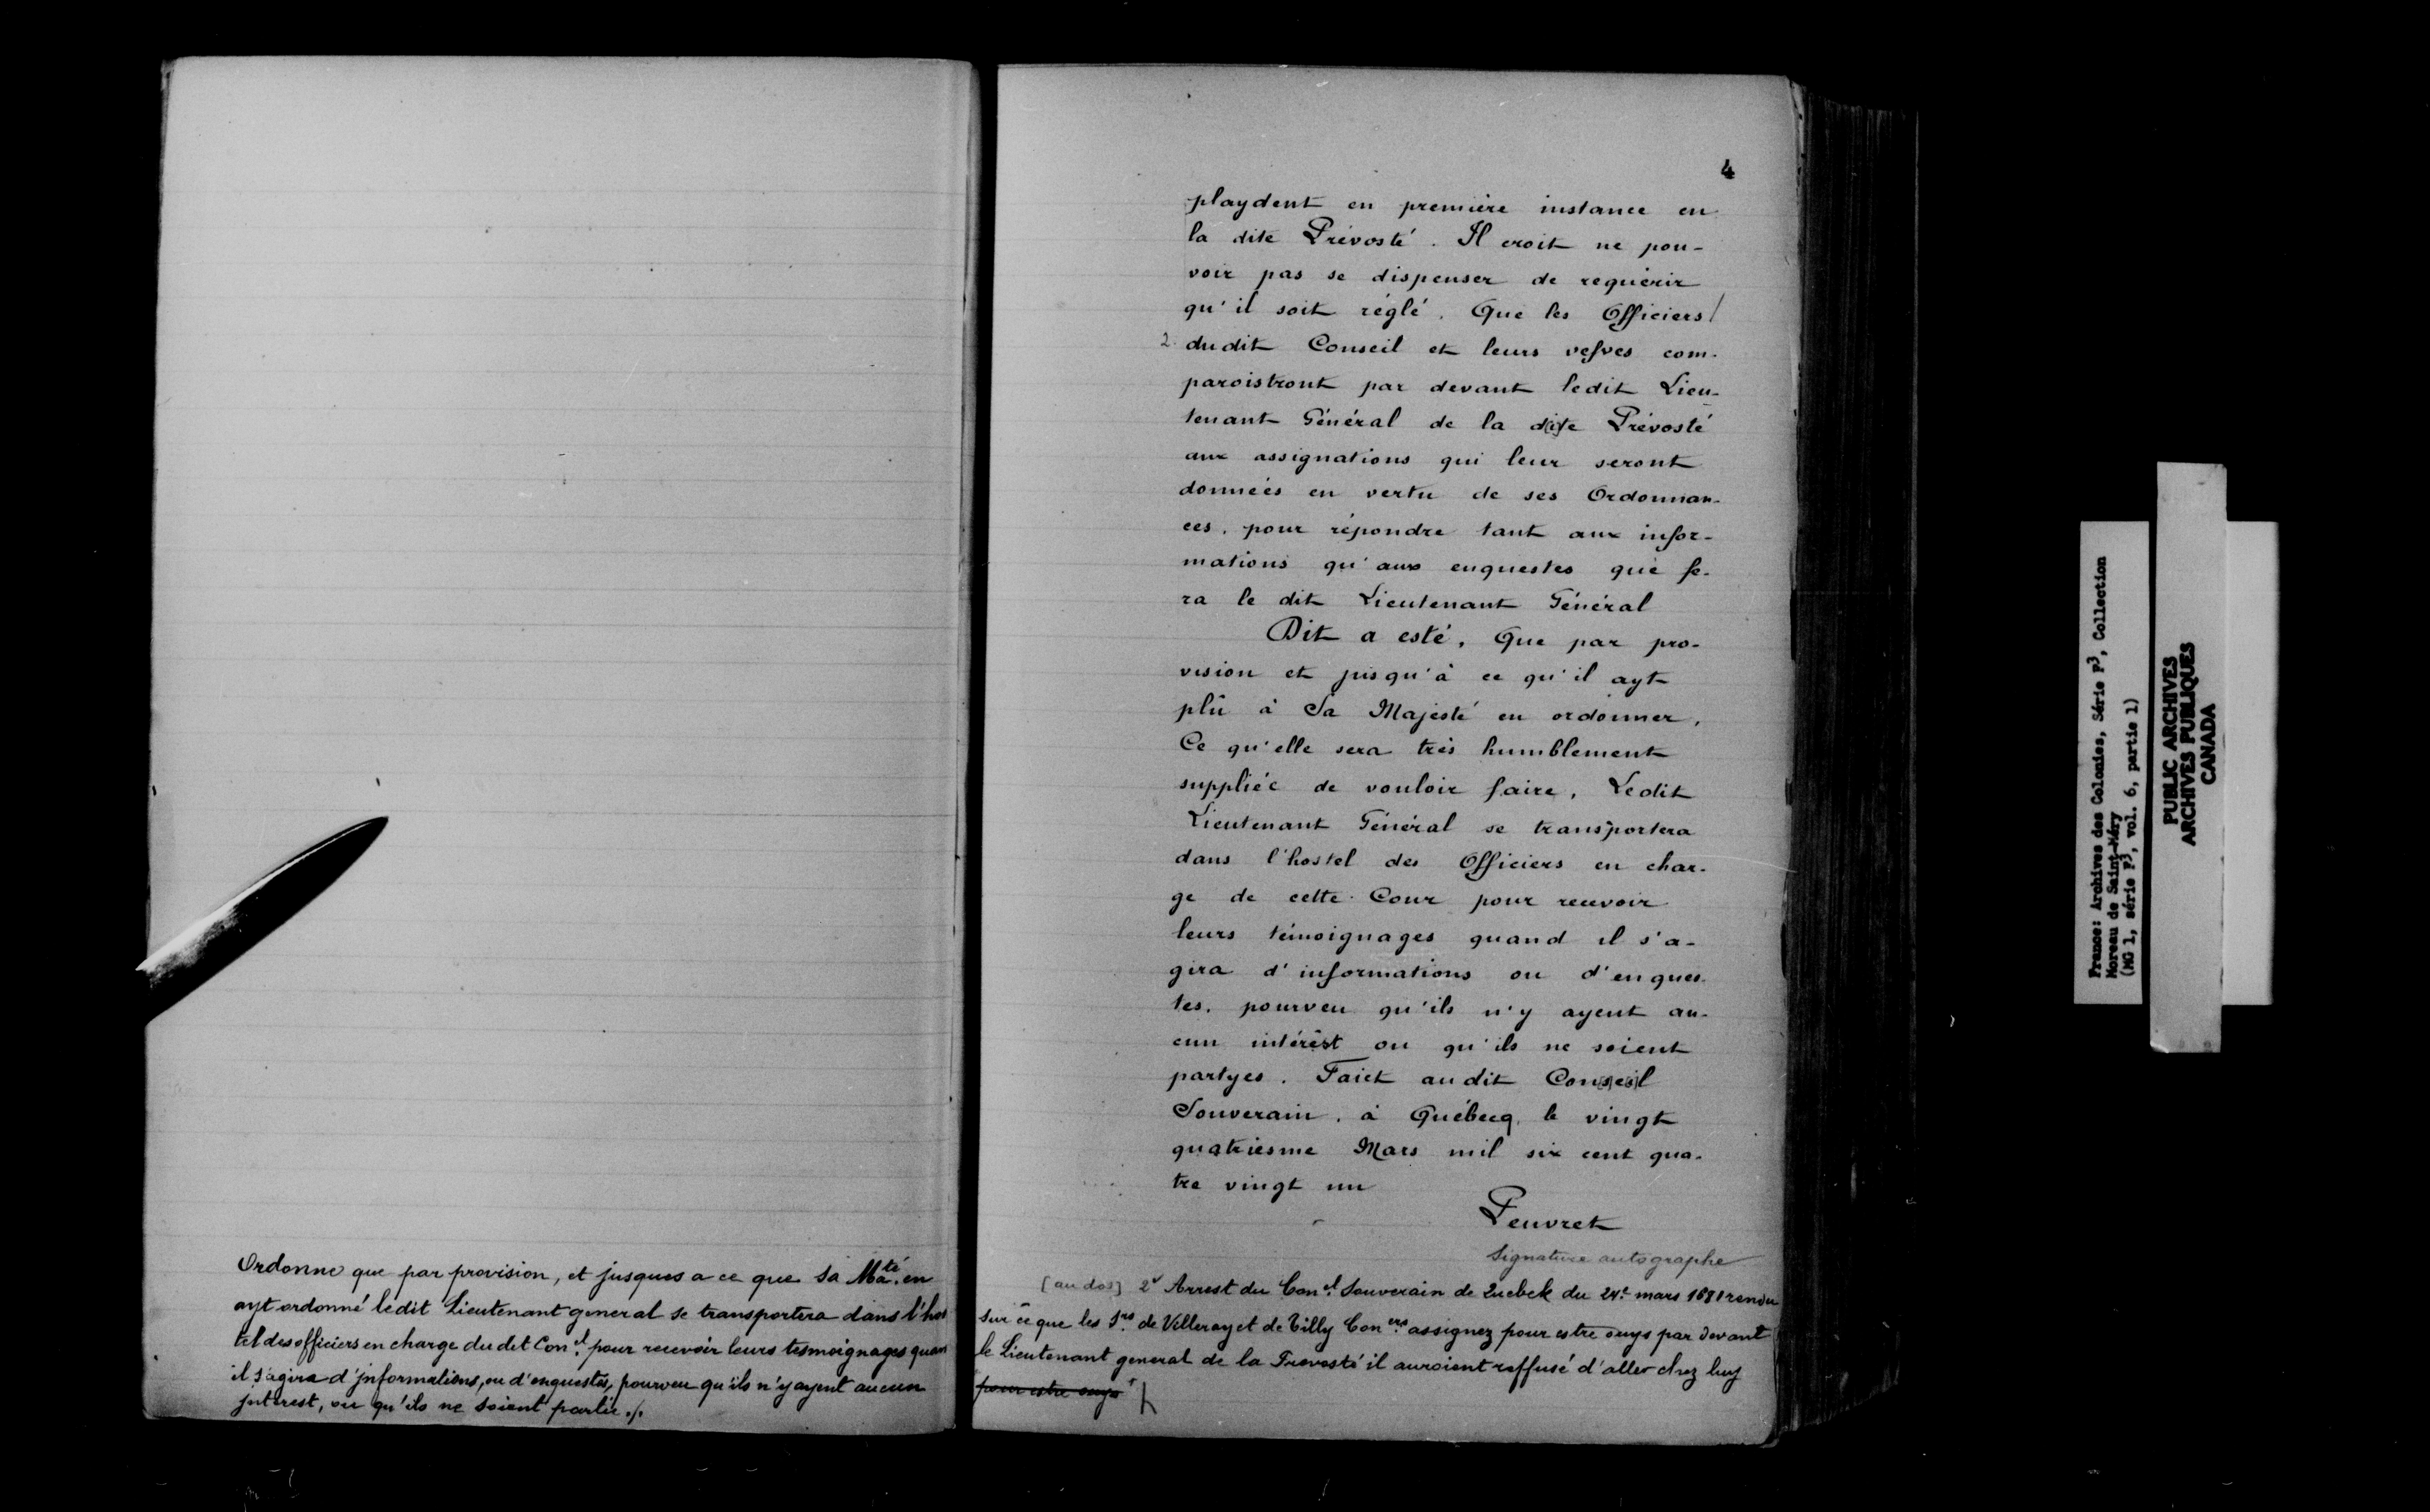 4
playdent en première instance en
la dite Prévosté. Il croit ne pou-
voir pas se dispenser de requérir
qu'il soit réglé. Que les Officiers/
2. dudit Conseil et leurs vefves com-
paroistront par devant ledit Lieu-
tenant Général de la d[it]e Prévosté
aux assignations qui leur seront
données en vertu de ses Ordonnan-
ces, pour répondre tant aux infor-
mations qu'aux enquestes que fe-
ra le dit Lieutenant Général
Dit a esté, Que par pro-
vision et jusqu'à ce qu'il ayt
plû à Sa Majesté en ordonner,
Ce qu'elle sera très humblement
suppliée de vouloir faire, Ledit
Lieutenant Général se transportera
dans l'hostel des Officiers en char-
ge de cette Cour pour recevoir
leurs témoignages quand il s'a-
gira d'informations ou d'enques-
tes, pourveu qu'ils n'y ayent au-
cun intérêst ou qu'ils ne soient
partyes. Faict audit Con[s]e[i]l
Souverain, à Québecq, le vingt
quatriesme Mars mil six cent qua-
tre vingt un
Peuvret
Signature autographe
[au dos] 2e Arrest du Con.el Souverain de Quebek du 24.e mars 1681 rendu
sur ce que les Srs de Villeray et de Tilly Con.ers assignez pour estre ouys par devant
le Lieutenant general de la Prevosté il auroient reffusé d'aller chez luy
pour estre ouys
Ordonne que par provision, et jusques a ce que Sa Ma.té en
ayt ordonné ledit Lieutenant general se transportera dans l'hos
tel des officiers en charge du dit Con.el pour recevoir leurs tesmoignages quan
il s'agira d'jnformations, ou d'enquestes, pourveu qu'ils n'y ayent aucun
jnterest, ou qu'ils ne soient partie ./.
France: Archives des Colonies, Série F3, Collection
Moreau de Saint-Méry
(MG 1, série F3, vol. 6, partie 1)
PUBLIC ARCHIVES
ARCHIVES PUBLIQUES
CANADA